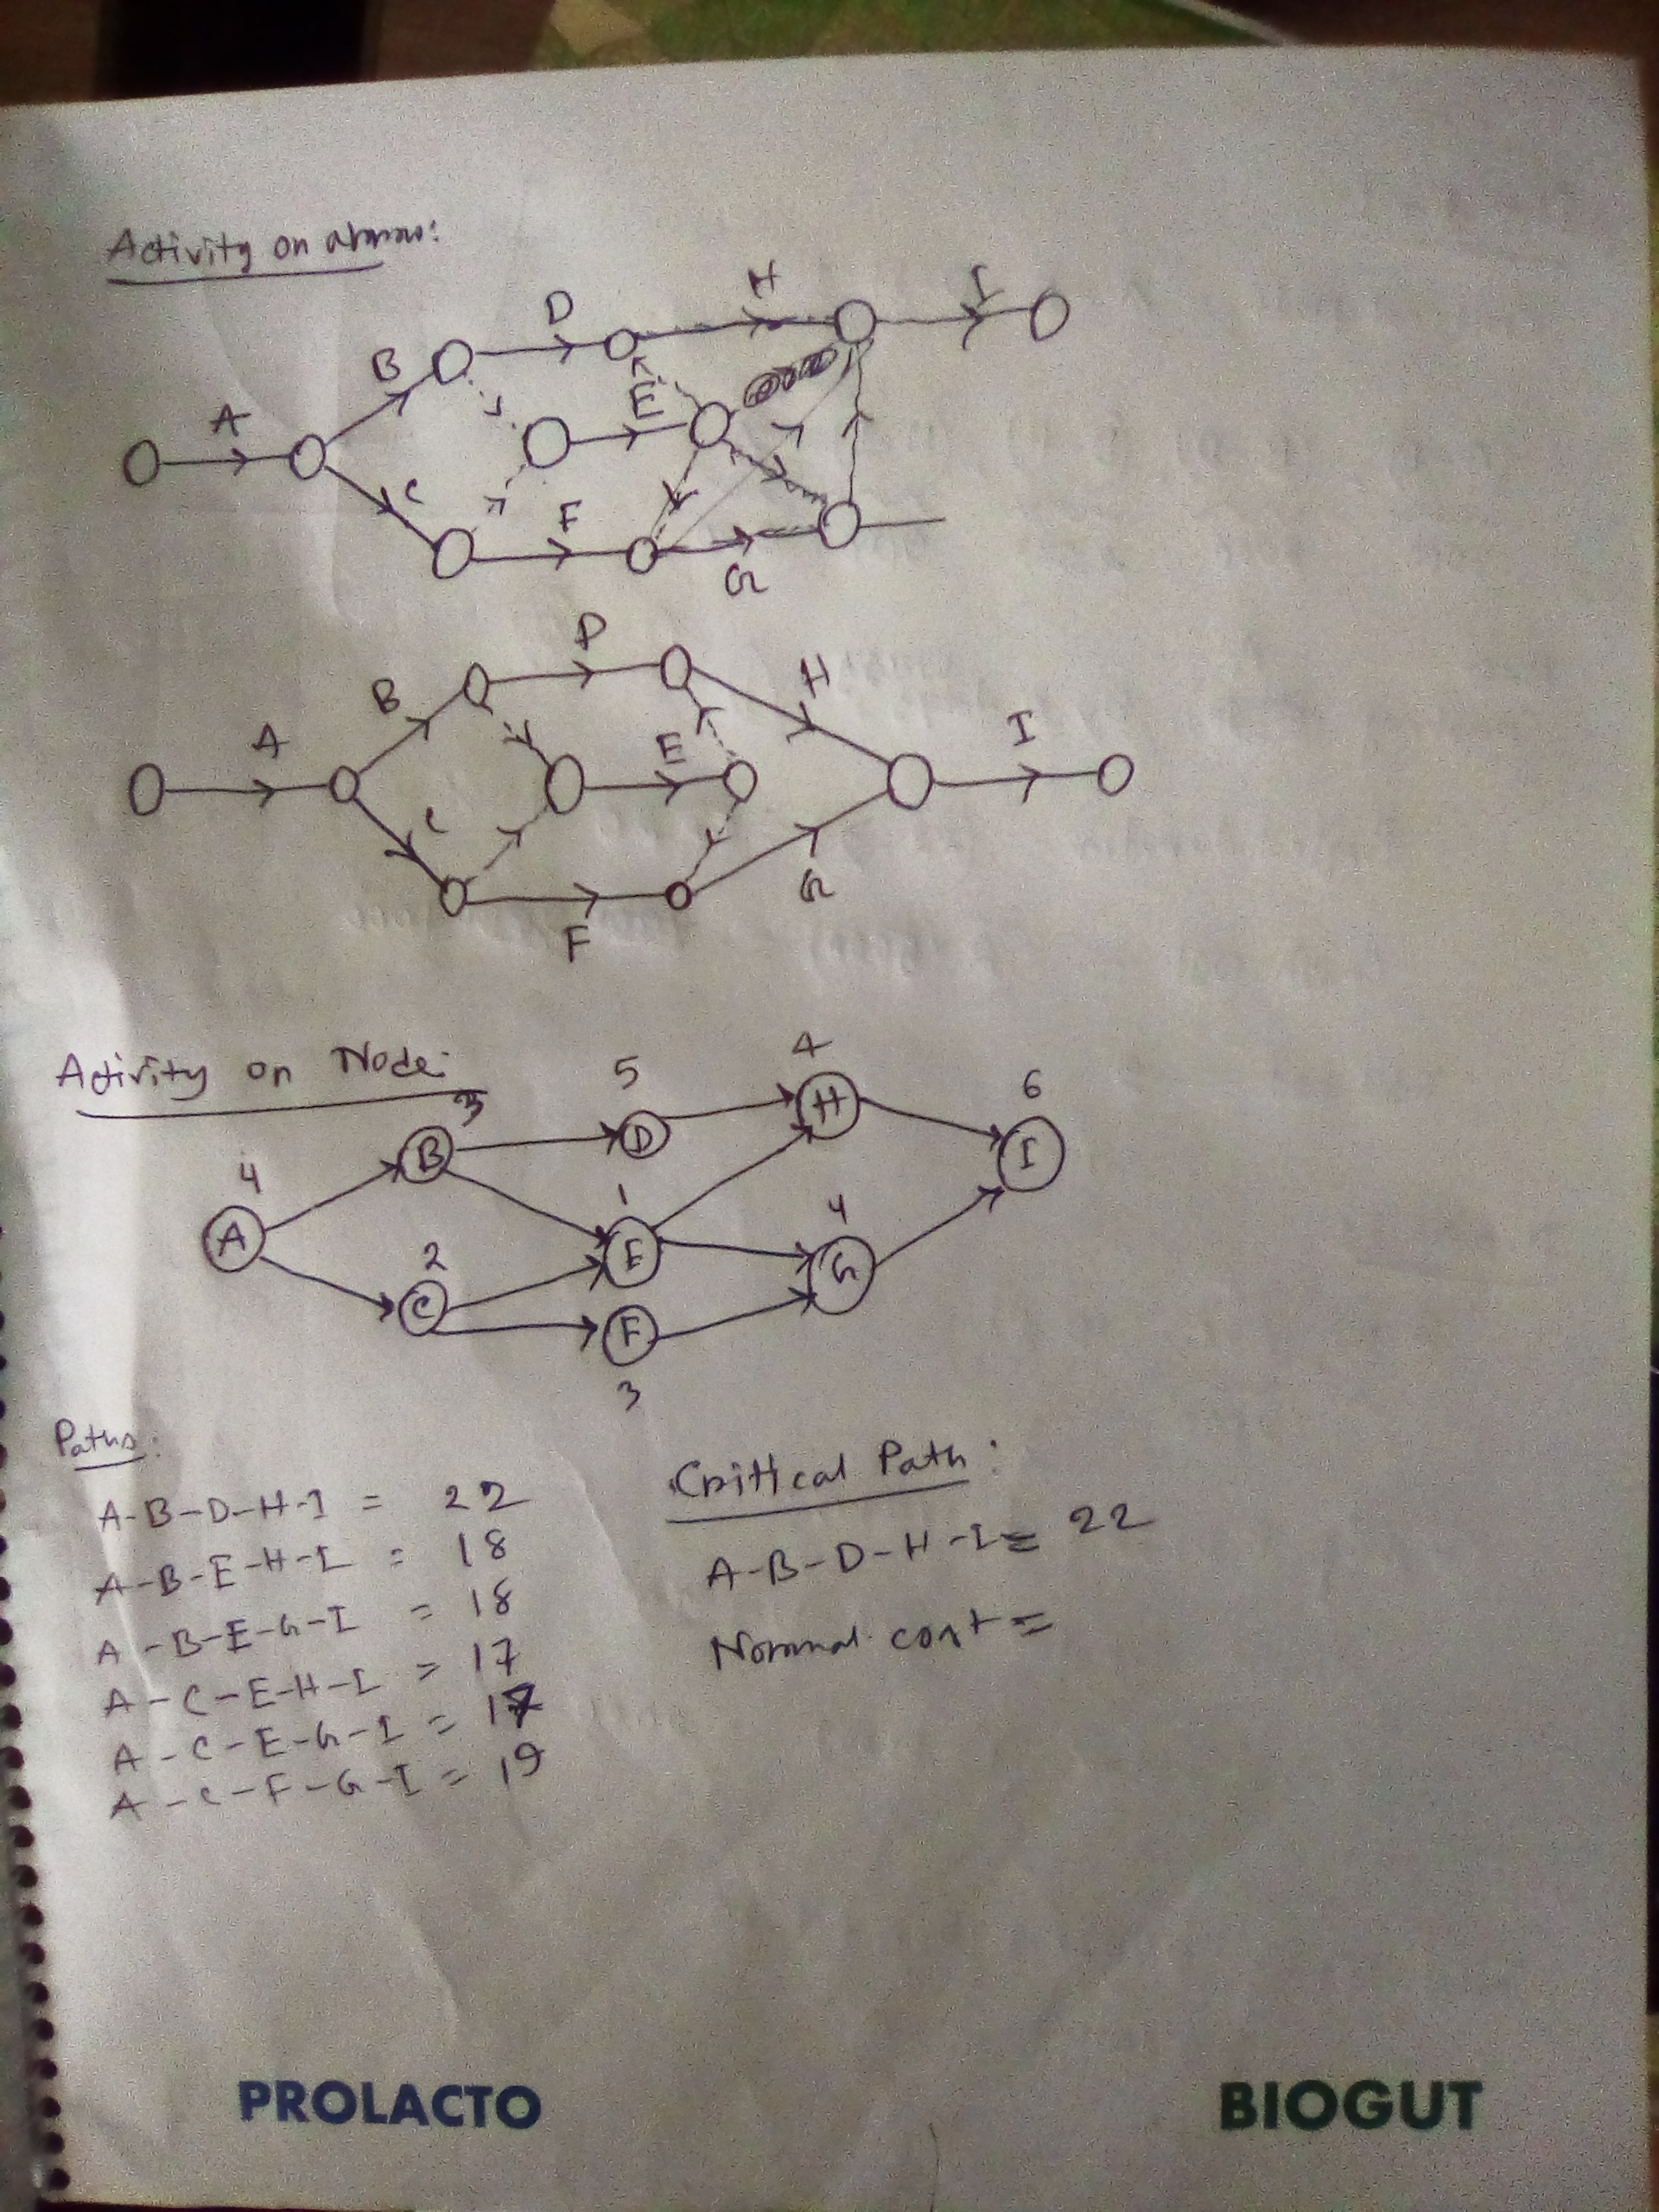 Activity on arrow:
A B C D E F G H I
A B C D E F G H I
Activity on Node:
4 3 2 5 1 3 4 4 6
A B C D E F H G I
Paths:
A-B-D-H-I = 22
A-B-E-H-I = 18
A-B-E-G-I = 18
A-C-E-H-I = 17
A-C-E-G-I = 17
A-C-F-G-I = 19
Critical Path:
A-B-D-H-I = 22
Normal cost =
PROLACTO
BIOGUT